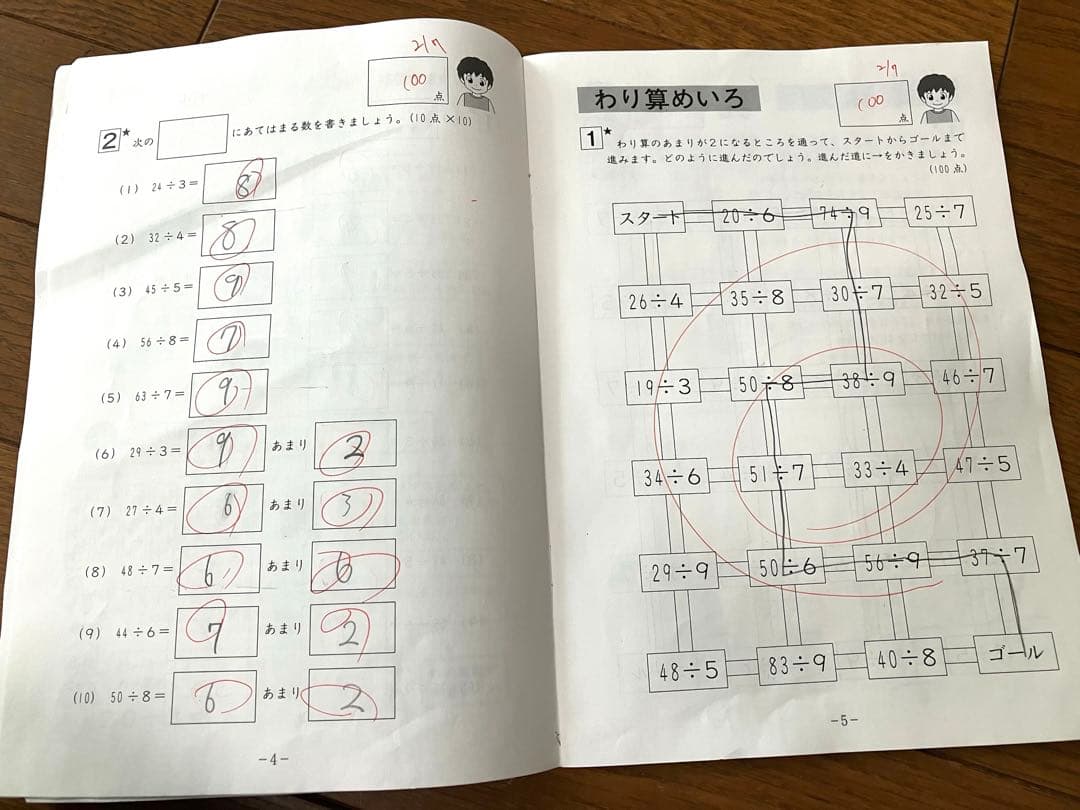 2/7
100
点
2★ 次の□にあてはまる数を書きましょう。(10点×10)
(1) 24÷3= 8
(2) 32÷4= 8
(3) 45÷5= 9
(4) 56÷8= 7
(5) 63÷7= 9
(6) 29÷3= 9 あまり 2
(7) 27÷4= 6 あまり 3
(8) 48÷7= 6 あまり 6
(9) 44÷6= 7 あまり 2
(10) 50÷8= 6 あまり 2
-4-
2/7
100
点
わり算めいろ
1★ わり算のあまりが2になるところを通って、スタートからゴールまで
進みます。どのように進んだのでしょう。進んだ道に→をかきましょう。
(100点)
スタート 20÷6 74÷9 25÷7
26÷4 35÷8 30÷7 32÷5
19÷3 50÷8 38÷9 46÷7
34÷6 51÷7 33÷4 47÷5
29÷9 50÷6 56÷9 37÷7
48÷5 83÷9 40÷8 ゴール
-5-